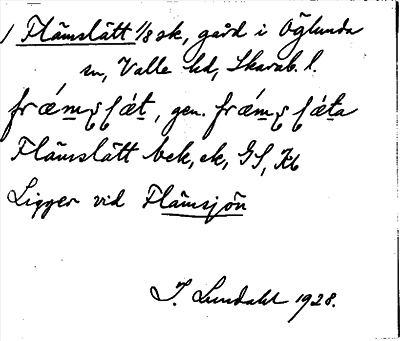 1 Flämslätt 1/8 sk, gård i Öglunda
sn, Valle hd, Skarab. l.
gen.
Flämslätt bek, ek, GS, Kb
Ligger vid Flämsjön
I. Lundahl 1928.